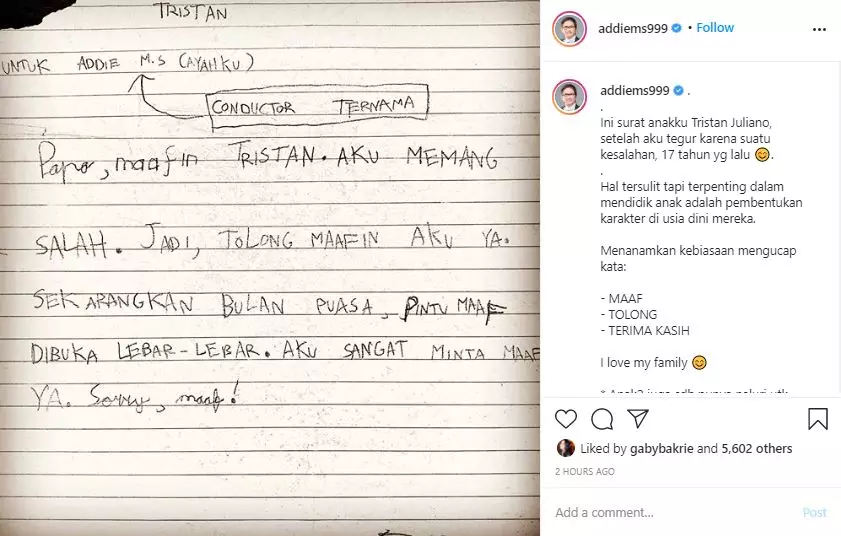 TRISTAN
UNTUK ADDIE M.S (AYAHKU)
CONDUCTOR TERNAMA
Papa, maafin TRISTAN. AKU MEMANG
SALAH. JADI, TOLONG MAAFIN AKU YA.
SEKARANGKAN BULAN PUASA, PINTU MAAF
DIBUKA LEBAR-LEBAR. AKU SANGAT MINTA MAAF
YA. Sorry, maaf!
addiems999 • Follow
addiems999 .
.
Ini surat anakku Tristan Juliano,
setelah aku tegur karena suatu
kesalahan, 17 tahun yg lalu 😊.
.
Hal tersulit tapi terpenting dalam
mendidik anak adalah pembentukan
karakter di usia dini mereka.
Menanamkan kebiasaan mengucap
kata:
- MAAF
- TOLONG
- TERIMA KASIH
I love my family 😊
Liked by gabybakrie and 5,602 others
2 HOURS AGO
Add a comment...
Post